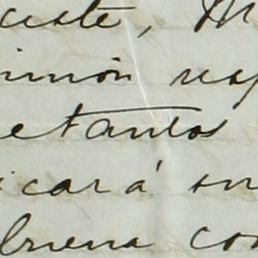 este, M
inión res
etantos
icará su
buena con